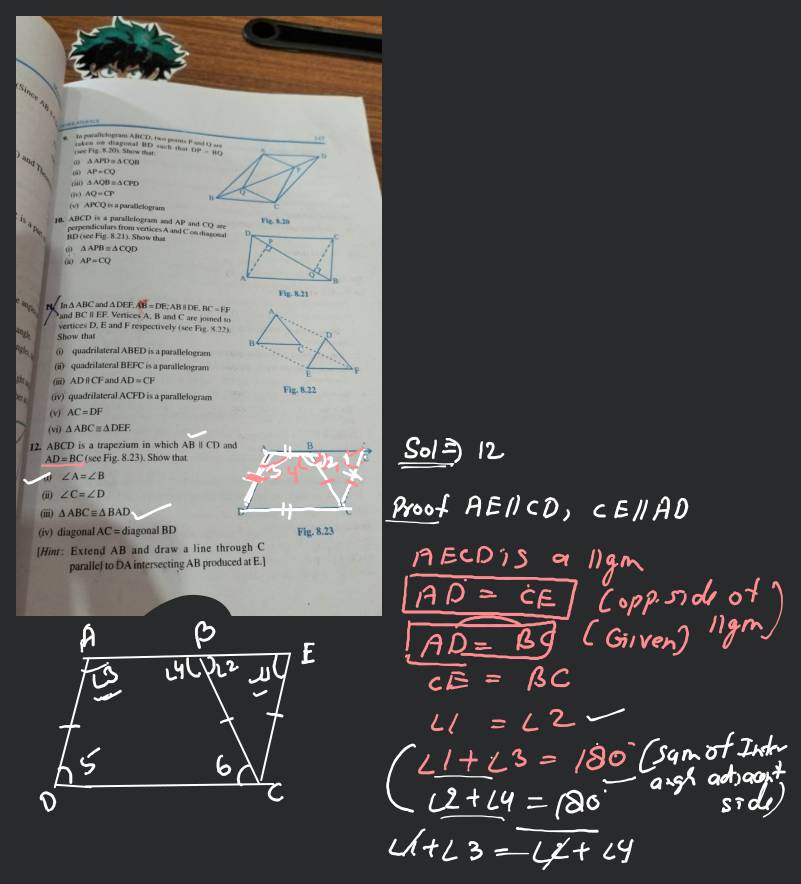 (Since AB
) and The
QUADRILATERALS
147
9. In parallelogram ABCD, two points P and Q are
taken on diagonal BD such that DP = BQ
(see Fig. 8.20). Show that:
(i) Δ APD ≅ Δ CQB
(ii) AP = CQ
(iii) Δ AQB ≅ Δ CPD
(iv) AQ = CP
(v) APCQ is a parallelogram
A
D
P
Q
B
C
Fig. 8.20
10. ABCD is a parallelogram and AP and CQ are
perpendiculars from vertices A and C on diagonal
BD (see Fig. 8.21). Show that
(i) Δ APB ≅ Δ CQD
(ii) AP = CQ
D
C
P
Q
A
B
Fig. 8.21
In Δ ABC and Δ DEF, AB = DE, AB || DE, BC = EF
and BC || EF. Vertices A, B and C are joined to
vertices D, E and F respectively (see Fig. 8.22).
Show that
(i) quadrilateral ABED is a parallelogram
(ii) quadrilateral BEFC is a parallelogram
(iii) AD || CF and AD = CF
(iv) quadrilateral ACFD is a parallelogram
(v) AC = DF
(vi) Δ ABC ≅ Δ DEF.
A
D
B
C
E
F
Fig. 8.22
12. ABCD is a trapezium in which AB || CD and
AD = BC (see Fig. 8.23). Show that
(i) ∠A = ∠B
(ii) ∠C = ∠D
(iii) Δ ABC ≅ Δ BAD
(iv) diagonal AC = diagonal BD
[Hint: Extend AB and draw a line through C
parallel to DA intersecting AB produced at E.]
B
Fig. 8.23
A B E
∠3 ∠4 ∠2 ∠1
5 6
D C
Sol ⇒ 12
Proof AE||CD, CE||AD
AECD is a ||gm
AD = CE (opp. side of ||gm)
AD = BC (Given)
CE = BC
∠1 = ∠2
∠1+∠3 = 180° (sum of Inter angl adjacent side)
∠2+∠4 = 180°
∠1+∠3 = ∠2+∠4